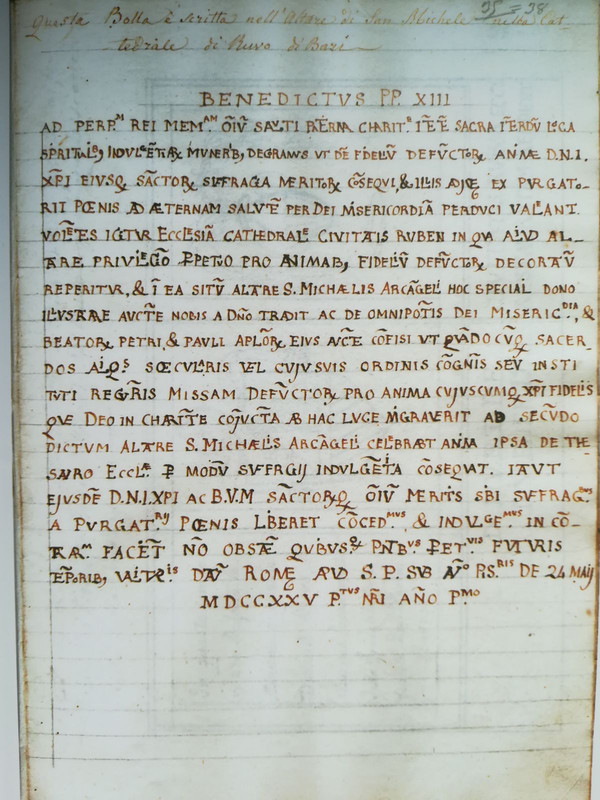 35 = 38
Questa Bolla è scritta nell'Altare di San Michele nella Cat-
tedrale di Ruvo di Bari
BENEDICTVS PP. XIII
AD PERP.M REI MEM.AM ŌIŪ SALTI PAT̄ERNA CHARIT.E SACRA LOCA
SPRITALIB, INDULGE͞TIAR MUNERIB, DECORAMUS UT DE FIDELIŪ DEFŪCTOR ANIMÆ D.N.I.
XP̄I EIUSQ SĀCTOR SUFFRAGIA MERITOR CŌSEQUI, & ILLIS EX PURGATO-
RII PŒNIS AD ÆTERNAM SALUTĒ PER DEI MISERICORDIĀ PERDUCI VALEANT.
VOLE͞TES IGITUR ECCLESIĀ CATHEDRALE CIVITATIS RUBEN IN QUA ALIUD AL-
TARE PRIVILEGIO PPETUO PRO ANIMAB, FIDELIŪ DEFŪCTOR DECORATŪ
REPERITUR, & Ī EA SITŪ ALTARE S. MICHAELIS ARCĀGELI HOC SPECIALI DONO
ILLUSTRARE AUCTE NOBIS A DÑO TRADIT AC DE OMNIPOTĪS DEI MISERIC.DIA, &
BEATOR PETRI, & PAULI APLOR EIUS AUCTE CŌFISI UT QUĀDOCŪQ SACER-
DOS ALIQ.S SŒCULARIS VEL CUJUSVIS ORDINIS CŌGNIS SEU INSTI
TUTI REGRIS MISSAM DEFŪCTOR PRO ANIMA CUJUSCUMQ XP̄I FIDELIS
QUE DEO IN CHARITTE CŌJUCTA AB HAC LUCE MIGRAVERIT AD SECŪDO
DICTUM ALTARE S. MICHAELIS ARCĀGELI CELEBRAET ANIMA IPSA DE THE
SAURO ECCL.Æ P MODŪ SUFFRAGIJ INDULGE͞TIA CŌSEQUAT. ITAUT
EJUSDĒ D.N.I.XP̄I AC B.V.M SĀCTORQ ŌIŪ MERITIS SIBI SUFFRAG.
A PURGAT.RIJ PŒNIS LIBERET CŌCED.MUS, & INDULGE.MUS IN CŌ-
RAR.M FACIE͞T NŌ OBSTĀE QUIBUS PNTBVS PPET.VIS FUTURIS
TĒPORIB, DAT̄ ROME APUD S. P. SUB DE 24 MAIJ
MDCCXXV P.TUS NRI AÑO P.MO